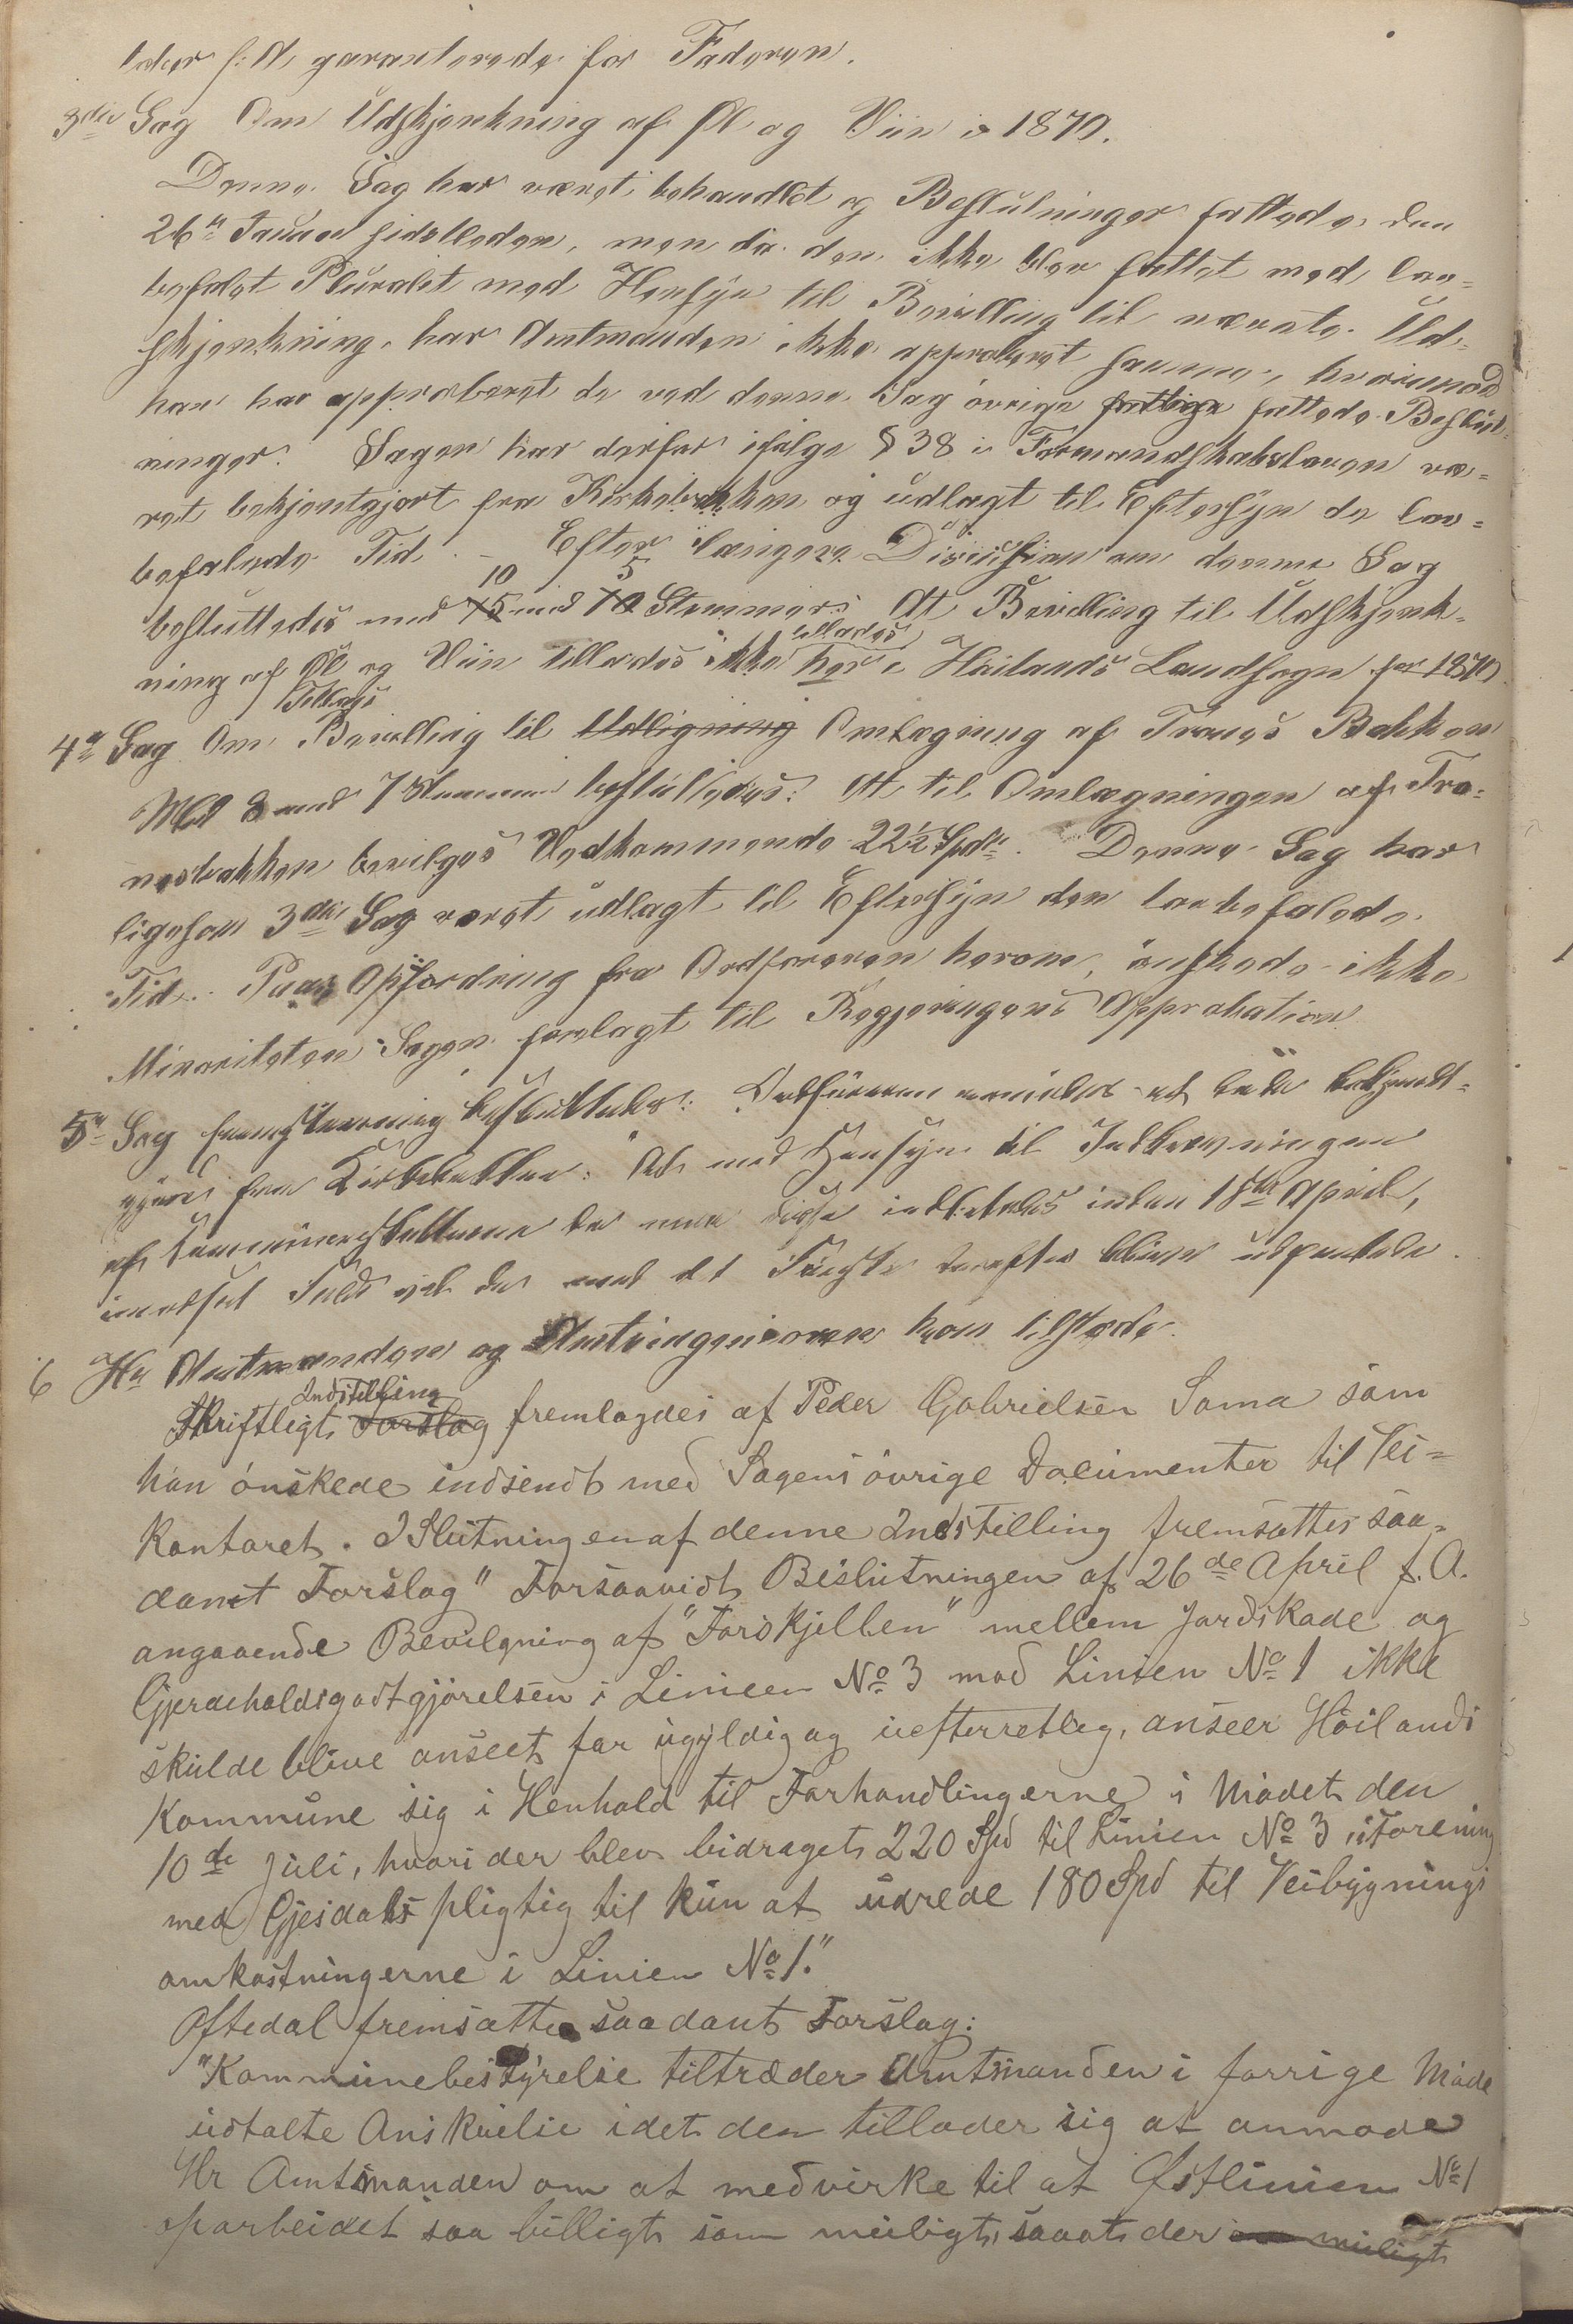 garanterede for Faderen.
3die Sag Om Udskjenkning af Øl og Viin i 1870.
Denne Sag har været behandlet og Beslutninger fattede den
26de Januar sidstleden, men da den ikke blev fattet med lov=
befalet Pluralitet med Hensyn til Bevilling til nævnte Ud=
skjenkning, har Amtmanden ikke approberet samme, hvorimod
han har approberet de ved denne Sag øvrige fattede Beslut=
ninger. Sagen har derfor ifølge § 38 i Formandskabsloven væ=
ret bekjentgjort fra Kirkebakken og udlagt til Eftersyn de lov=
befalede Tid. – Efter længere Discussion om denne Sag
besluttedes med 10 mod 5 Stemmer: At Bevilling til Udskjenk=
ning af Øl og Viin tillades ikke her i Høilands Landsogn for 1870.
4de Sag Om Tillægs Bevilling til Omlægning af Tranes Bakken
Med 8 mod 7 Stemmer besluttedes: At til Omlægningen af Tra=
nesbakken bevilges Vedkommende 22½ Spdr. Denne Sag har
ligesom 3die Sag været udlagt til Eftersyn den lovbefalede
Tid. Paa Opfordring fra Ordføreren herom, ønskede ikke
Minoriteten Sagen forelagt til Regjeringens Approbation.
5te Sag besluttedes: Ordføreren at lade bekjendt=
gjøre fra Kirkebakken: At med Hensyn til Inddrivningen
af da maa disse indbetales inden 18de April,
imodsat Fald vil de med det Første derefter blive udpantede.
6 Hr Amtmanden og Amtsingenioren kom tilstede.
Skriftligt Indstilling fremlagdes af Peder Gabrielsen Soma som
han ønskede indsendt med Sagens øvrige Documenter til Vei=
kontoret. I Slutningen af denne Indstilling fremsattes saa=
dant Forslag "Forsaavidt Beslutningen af 26de April f. A.
angaaende Bevilgning af "Forskjellen" mellem Jordskade og
Gjerdeholdsgodtgjørelsen i Linieen No 3 mod Linien No 1 ikke
skulde blive anseet for ugyldig og uefterretlig, anseer Høilands
Kommune sig i Henhold til Forhandlingerne i Mødet den
10de Juli, hvori der blev bidraget 220 Spd til Linien No 3 i Forening
med Gjesdals pligtig til kun at udrede 180 Spd til Veibygnings
omkostningerne i Linien No 1."
Oftedal fremsatte saadant Forslag:
"Kommunebestyrelse tiltræder Amtmanden i forrige Møde
udtalte Anskuelse idet den tillader sig at anmode
Hr Amtmanden om at medvirke til at Østlinien No 1
oparbeidet saa billigt som muligt, saaat der muligt